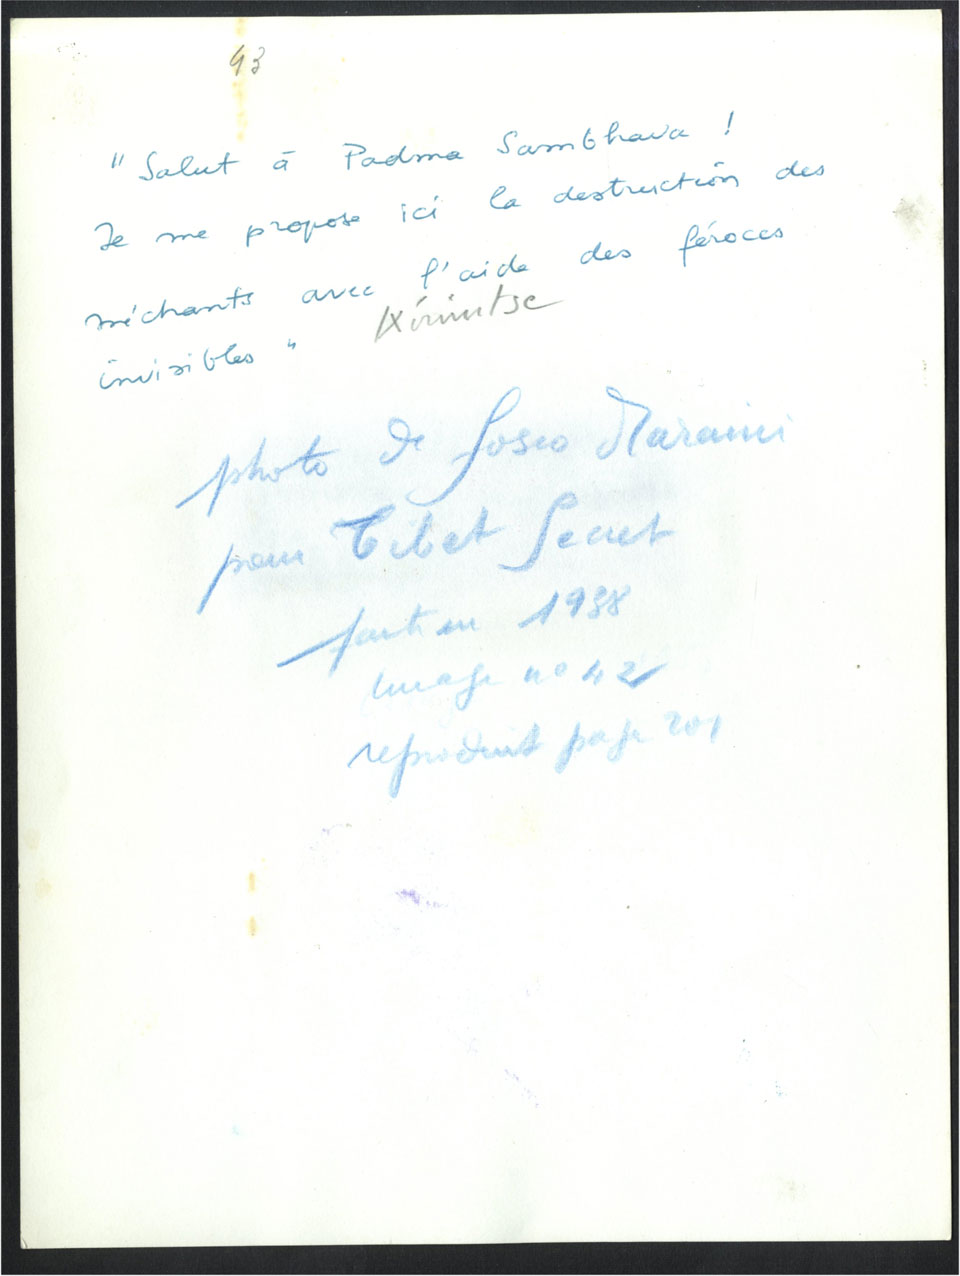 93
" Salut à Padma Sambhava !
Je me propose ici la destruction des
méchants avec l'aide des féroces
invisibles "
photo de Fosco Maraini
pour Tibet Secret
fait en 1938
Image no 42
reproduit page 201